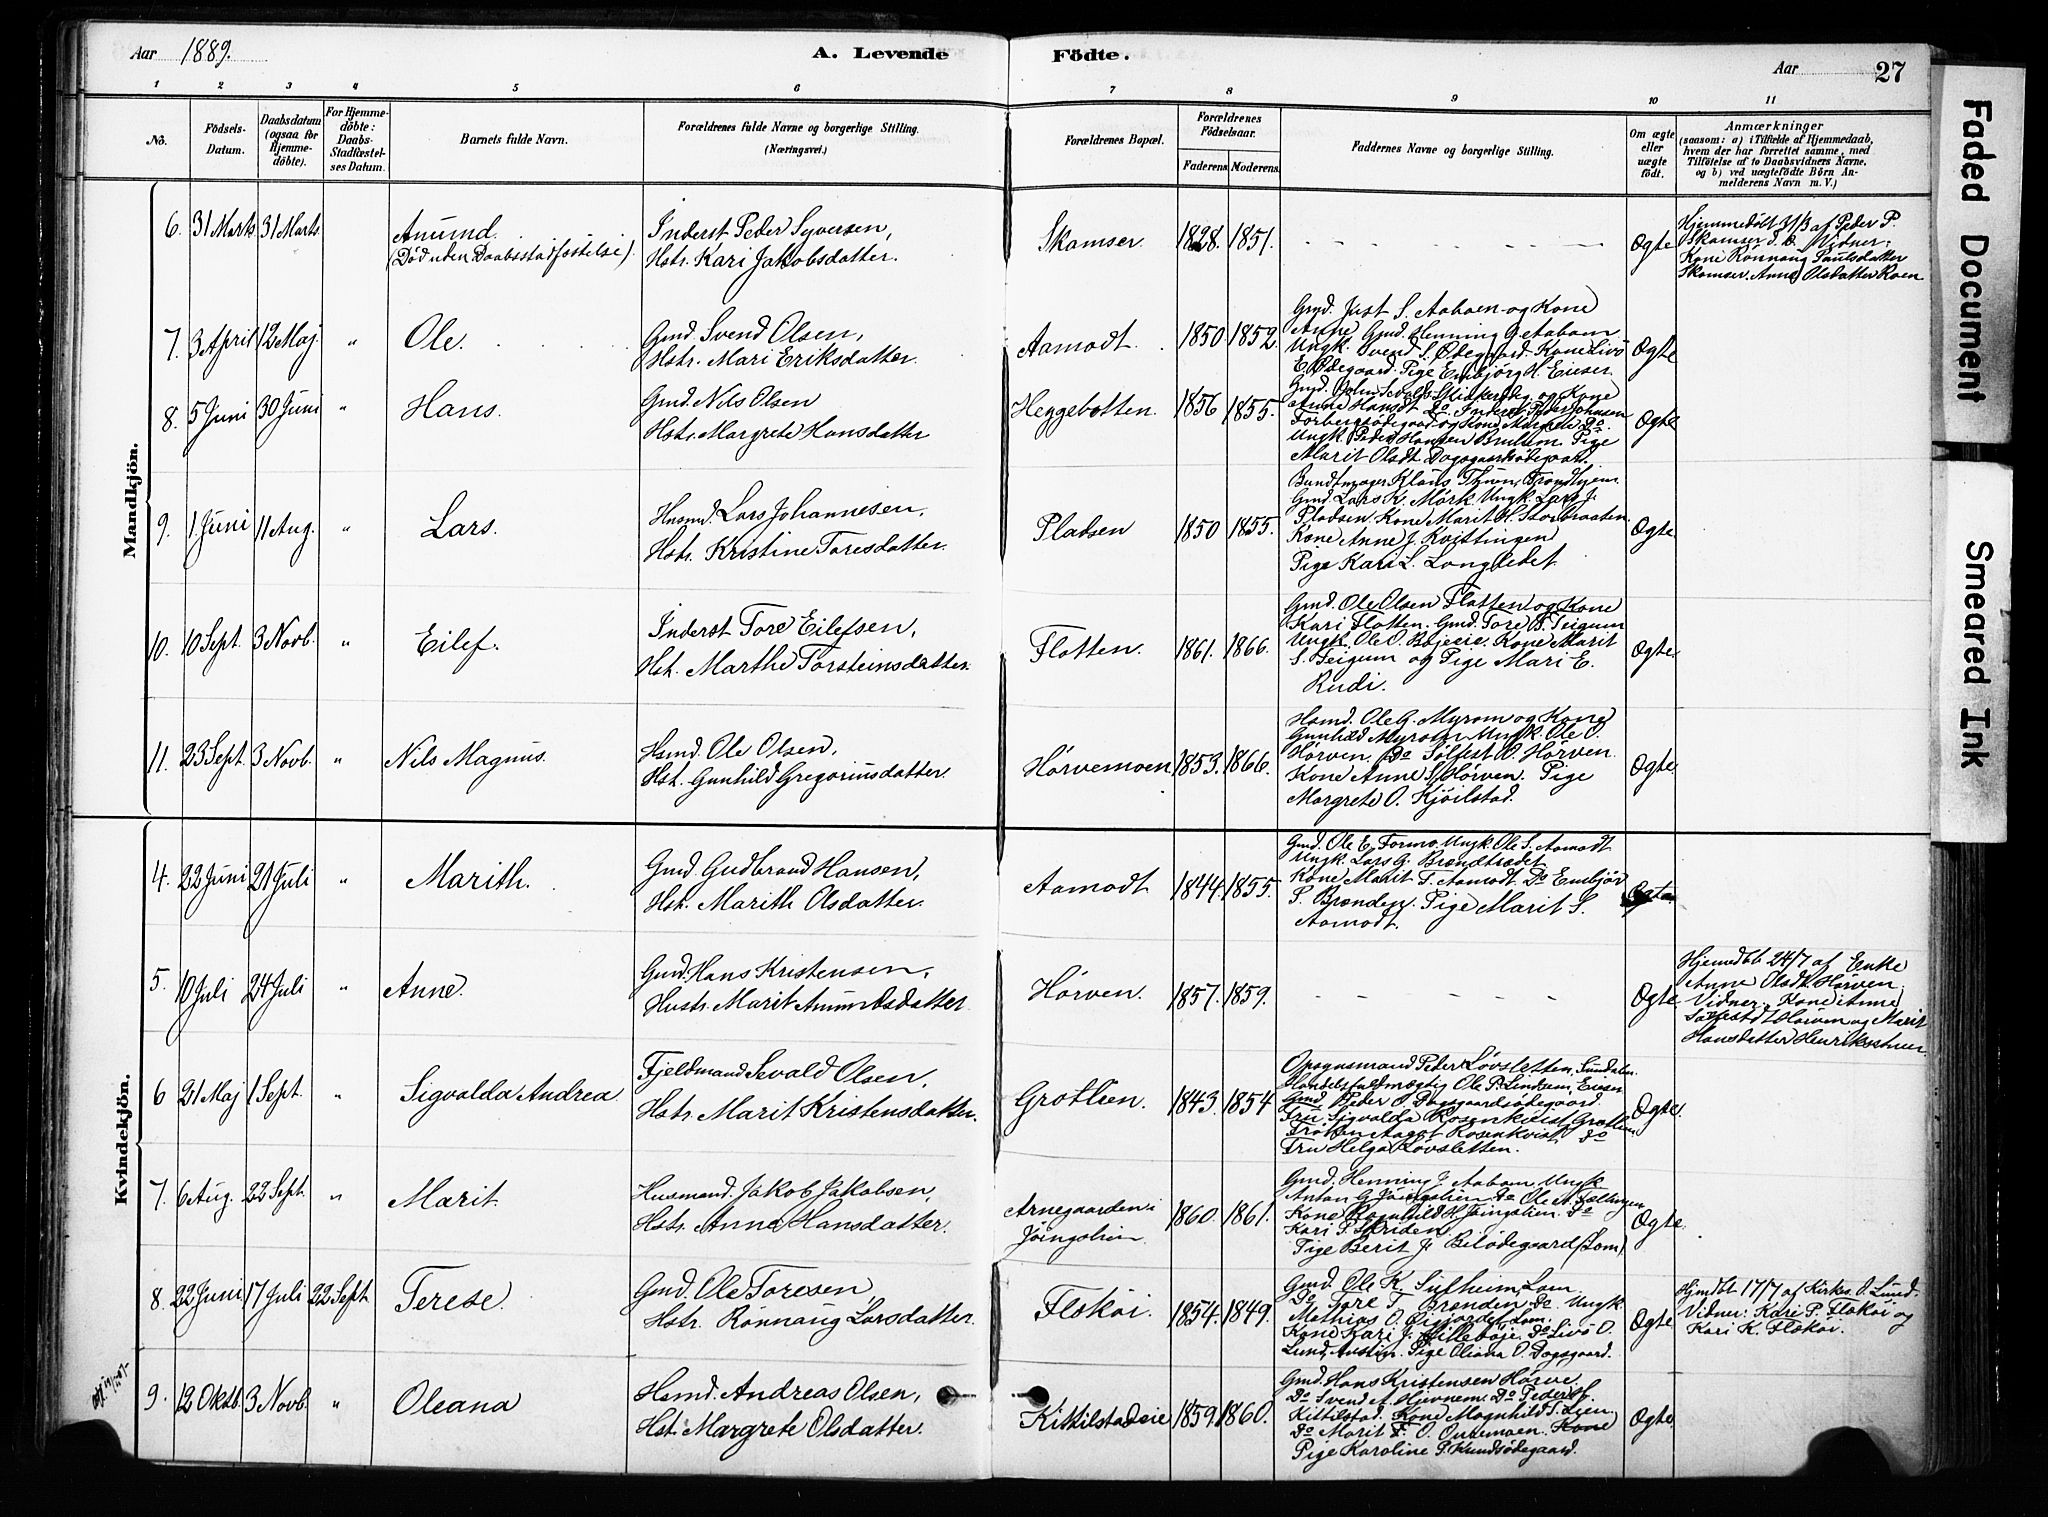 Aar 1889.
A. Levende Födte.
Aar 27
1 2 3 4 5 6 7 8 9 10 11
No.
Födsels-
Datum.
Daabsdatum
(ogsaa for
Hjemme-
döbte).
For Hjemme-
döbte:
Daabs-
Stadfæstel-
ses Datum.
Barnets fulde Navn.
Forældrenes fulde Navne og borgerlige Stilling.
(Næringsvei.)
Forældrenes Bopæl.
Forældrenes
Födselsaar.
Faderens. Moderens.
Faddernes Navne og borgerlige Stilling.
Om ægte
eller
uægte
födt.
Anmærkninger
(saasom: a) i Tilfælde af Hjemmedaab,
hvem der har forrettet samme, med
Tilföielse af to Daabsvidners Navne,
og b) ved uægtefödte Börn An-
melderens Navn m. V.)
Mandkjön.
6. 31 Marts 31 Marts
Anund.
(Död uden Daabsstadfæstelse)
Inderst Peder Syversen,
Hstr. Kari Jakobsdatter.
Skamser. 1828. 1851.
Ægte
Hjemmedöbt 31/3 af Peder P.
Skamser d. e. Vidner:
Kone Rönnaug Paulsdatter
Skamser. Anne Olsdatter Roen
7. 3 April 12 Maj " Ole.
Gmd. Svend Olsen,
Hstr. Mari Eriksdatter.
Aamodt. 1850 1852.
Gmd. Just S. Aaboen og Kone
Anne Gmd. Henning G. Aabom
Ungk. Svend S. Ödegaard. Kone Livö
E. Ödegaard. Pige Embjörg H.
Ægte
8. 5 Juni 30 Juni " Hans.
Gmd. Nils Olsen
Hstr. Margrete Hansdatter
Heggebotten. 1856 1855.
Anne Hansdt. Do. Inderst Peder Johansen
Ungk. Peder Hansen Brulum. Pige
Marit Olsdt. Dagsgaardsödegaard.
Ægte
9. 1 Juni 11 Aug. " Lars.
Husmd. Lars Johannesen,
Hstr. Kristine Toresdatter.
Pladsen 1850 1855.
Bundtmager Klaus Thune, Trondhjem
Gmd. Lars K. Mörk Ungk. Lars J.
Pladsen. Kone Marit H. Storbraaten
Kone Anne J. Kvittingen
Pige Kari L. Langledet.
Ægte.
10. 10 Sept. 3 Novb. " Eilef.
Inderst Tore Eilefsen,
Hst. Marthe Torsteinsdatter.
Flatten. 1861. 1866.
Gmd. Ole Olsen Flatten og Kone
Kari Flatten. Gmd. Tore B. Teigum
Ungk. Ole O. Böjeeie. Kone Marit
S. Teigum og Pige Mari E.
Rudi.
Ægte.
11. 23 Sept. 3 Novb. " Nils Magnus.
Hsmd. Ole Olsen,
Hst. Gunhild Gregoriusdatter.
Hörvemoen 1853. 1866.
Hsmd. Ole G. Myrom og Kone
Gunhild Myrom Ungk. Ole O.
Hörven. Do Sölfest O. Hörven.
Kone Anne S. Hörven. Pige
Margrete O. Kjöilstad.
Ægte.
Kvindekjön.
4. 22 Juni 21 Juli " Marith.
Gmd. Gudbrand Hansen,
Hst. Marith Olsdatter.
Aamodt 1844. 1855.
Gmd. Ole E. Formo. Ungk. Ole S. Aamodt
Ungk. Lars G. Brændtrædet
Kone Marit T. Aamodt. Do Embjör
S. Brænden. Pige Marit S.
Aamodt.
Ægte
5. 10 Juli 24 Juli " Anne.
Gmd. Hans Kristensen,
Hustr. Marit Anundsdatter.
Hörven. 1857. 1859.
Ægte
Hjemedbt 24/7 af Enke
Anne Olsdt. Hörven.
Vidner: Kone Anne
Hörven og Marit
Hansdatter
6 21 Maj 1 Sept. " Sigvalda Andrea
Fjeldmand Sevald Olsen,
Hstr. Marit Kristensdatter.
Grotlien. 1843. 1854
Opsynsmand Peder Lövsletten, Sundalen
Handelsfuldmægtig Ole P.
Gmd. Peder O. Dagsgaardsödegaard.
Fru Sigvalda Rosenkvist Grotlien
Fröken Aagot Rosenkvist Do
Fru Helga Lövsletten.
Ægte.
7. 6 Aug. 22 Sept. " Marit.
Husmand. Jakob Jakobsen,
Hstr. Anne Hansdatter.
Arnegaarden i
Jöingslien 1860. 1861.
Gmd. Henning J. Aabom. Ungk
Anton G. Jöingslien Do Ole A.
Kone Ragnhild H. Jöingslien. Do
Kari P. Skriden
Pige Berit J. Bilödegaard (Lom)
Ægte.
8. 22 Juni 17 Juli 22 Sept. Terese.
Gmd. Ole Toresen,
Hstr. Rönnaug Larsdatter.
Fleköi. 1854. 1849.
Gmd. Ole K. Sulheim, Lom.
Do Tore T. Brænden Do Ungk
Mathias O. Lom.
Kone Kari J. Hilleböje. Do Livö O.
Lund, Austin. Pige Oliana O. Dagsgaard.
Ægte
Hjmdbt 17/7 af Kirkes. O. Lund.
Vidner: Kari P. Flekøi og
Kari K. Flekøi.
9. 12 Oktb. 3 Novb. " Oleana
Hsmd. Andreas Olsen,
Hst. Margrete Olsdatter.
Kittilstadeie 1859. 1860.
Gmd. Hans Kristensen Hörve.
Do Svend A. Hjevnem. Do Peder H.
Kittilstad. Kone Magnhild T. Lien.
Do Marit T. O. Kone
Pige Karoline S.
Ægte.
Faded Document
Smeared Ink